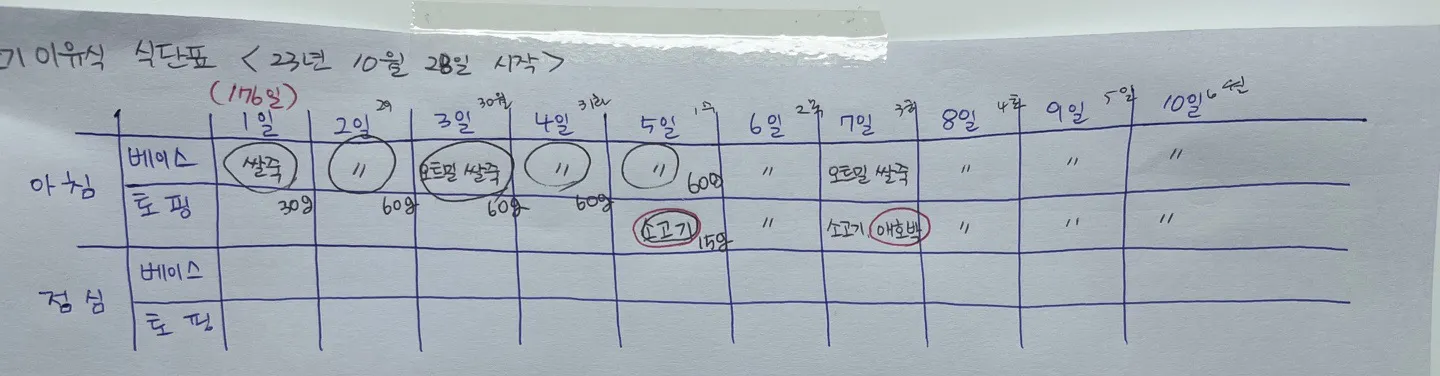 기 이유식 식단표 < 23년 10월 28일 시작>
(176일)
1일 2일 29 3일 30월 4일 31화 5일 6일 7일 8일 9일 5일 10일 6
아침 베이스 쌀죽 〃 오트밀 쌀죽 〃 〃 60g 〃 오트밀 쌀죽 〃 〃 〃
토핑 30g 60g 60g 60g 소고기 15g 〃 소고기 애호박 〃 〃 〃
점심 베이스
토핑